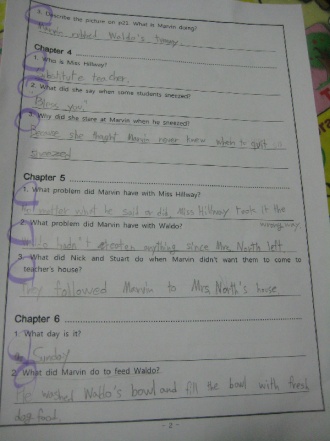 3. Describe the picture on p21. What is Marvin doing?
Marvin rubbed Waldo's tummy.
Chapter 4
1. Who is Miss Hillway?
Substitute teacher.
2. What did she say when some students sneezed?
"Bless you."
3. Why did she stare at Marvin when he sneezed?
Because she thought Marvin never knew when to quit
sneezed
Chapter 5
1. What problem did Marvin have with Miss Hillway?
No matter what he said or did, Miss Hillway took it the
wrong way.
2. What problem did Marvin have with Waldo?
Waldo hadn't eaten anything since Mrs. North left
3. What did Nick and Stuart do when Marvin didn't want them to come to
teacher's house?
They followed Marvin to Mrs. North's house
Chapter 6
1. What day is it?
Sunday
2. What did Marvin do to feed Waldo?
He washed Waldo's bowl and fill the bowl with fresh
dog food.
- 2 -